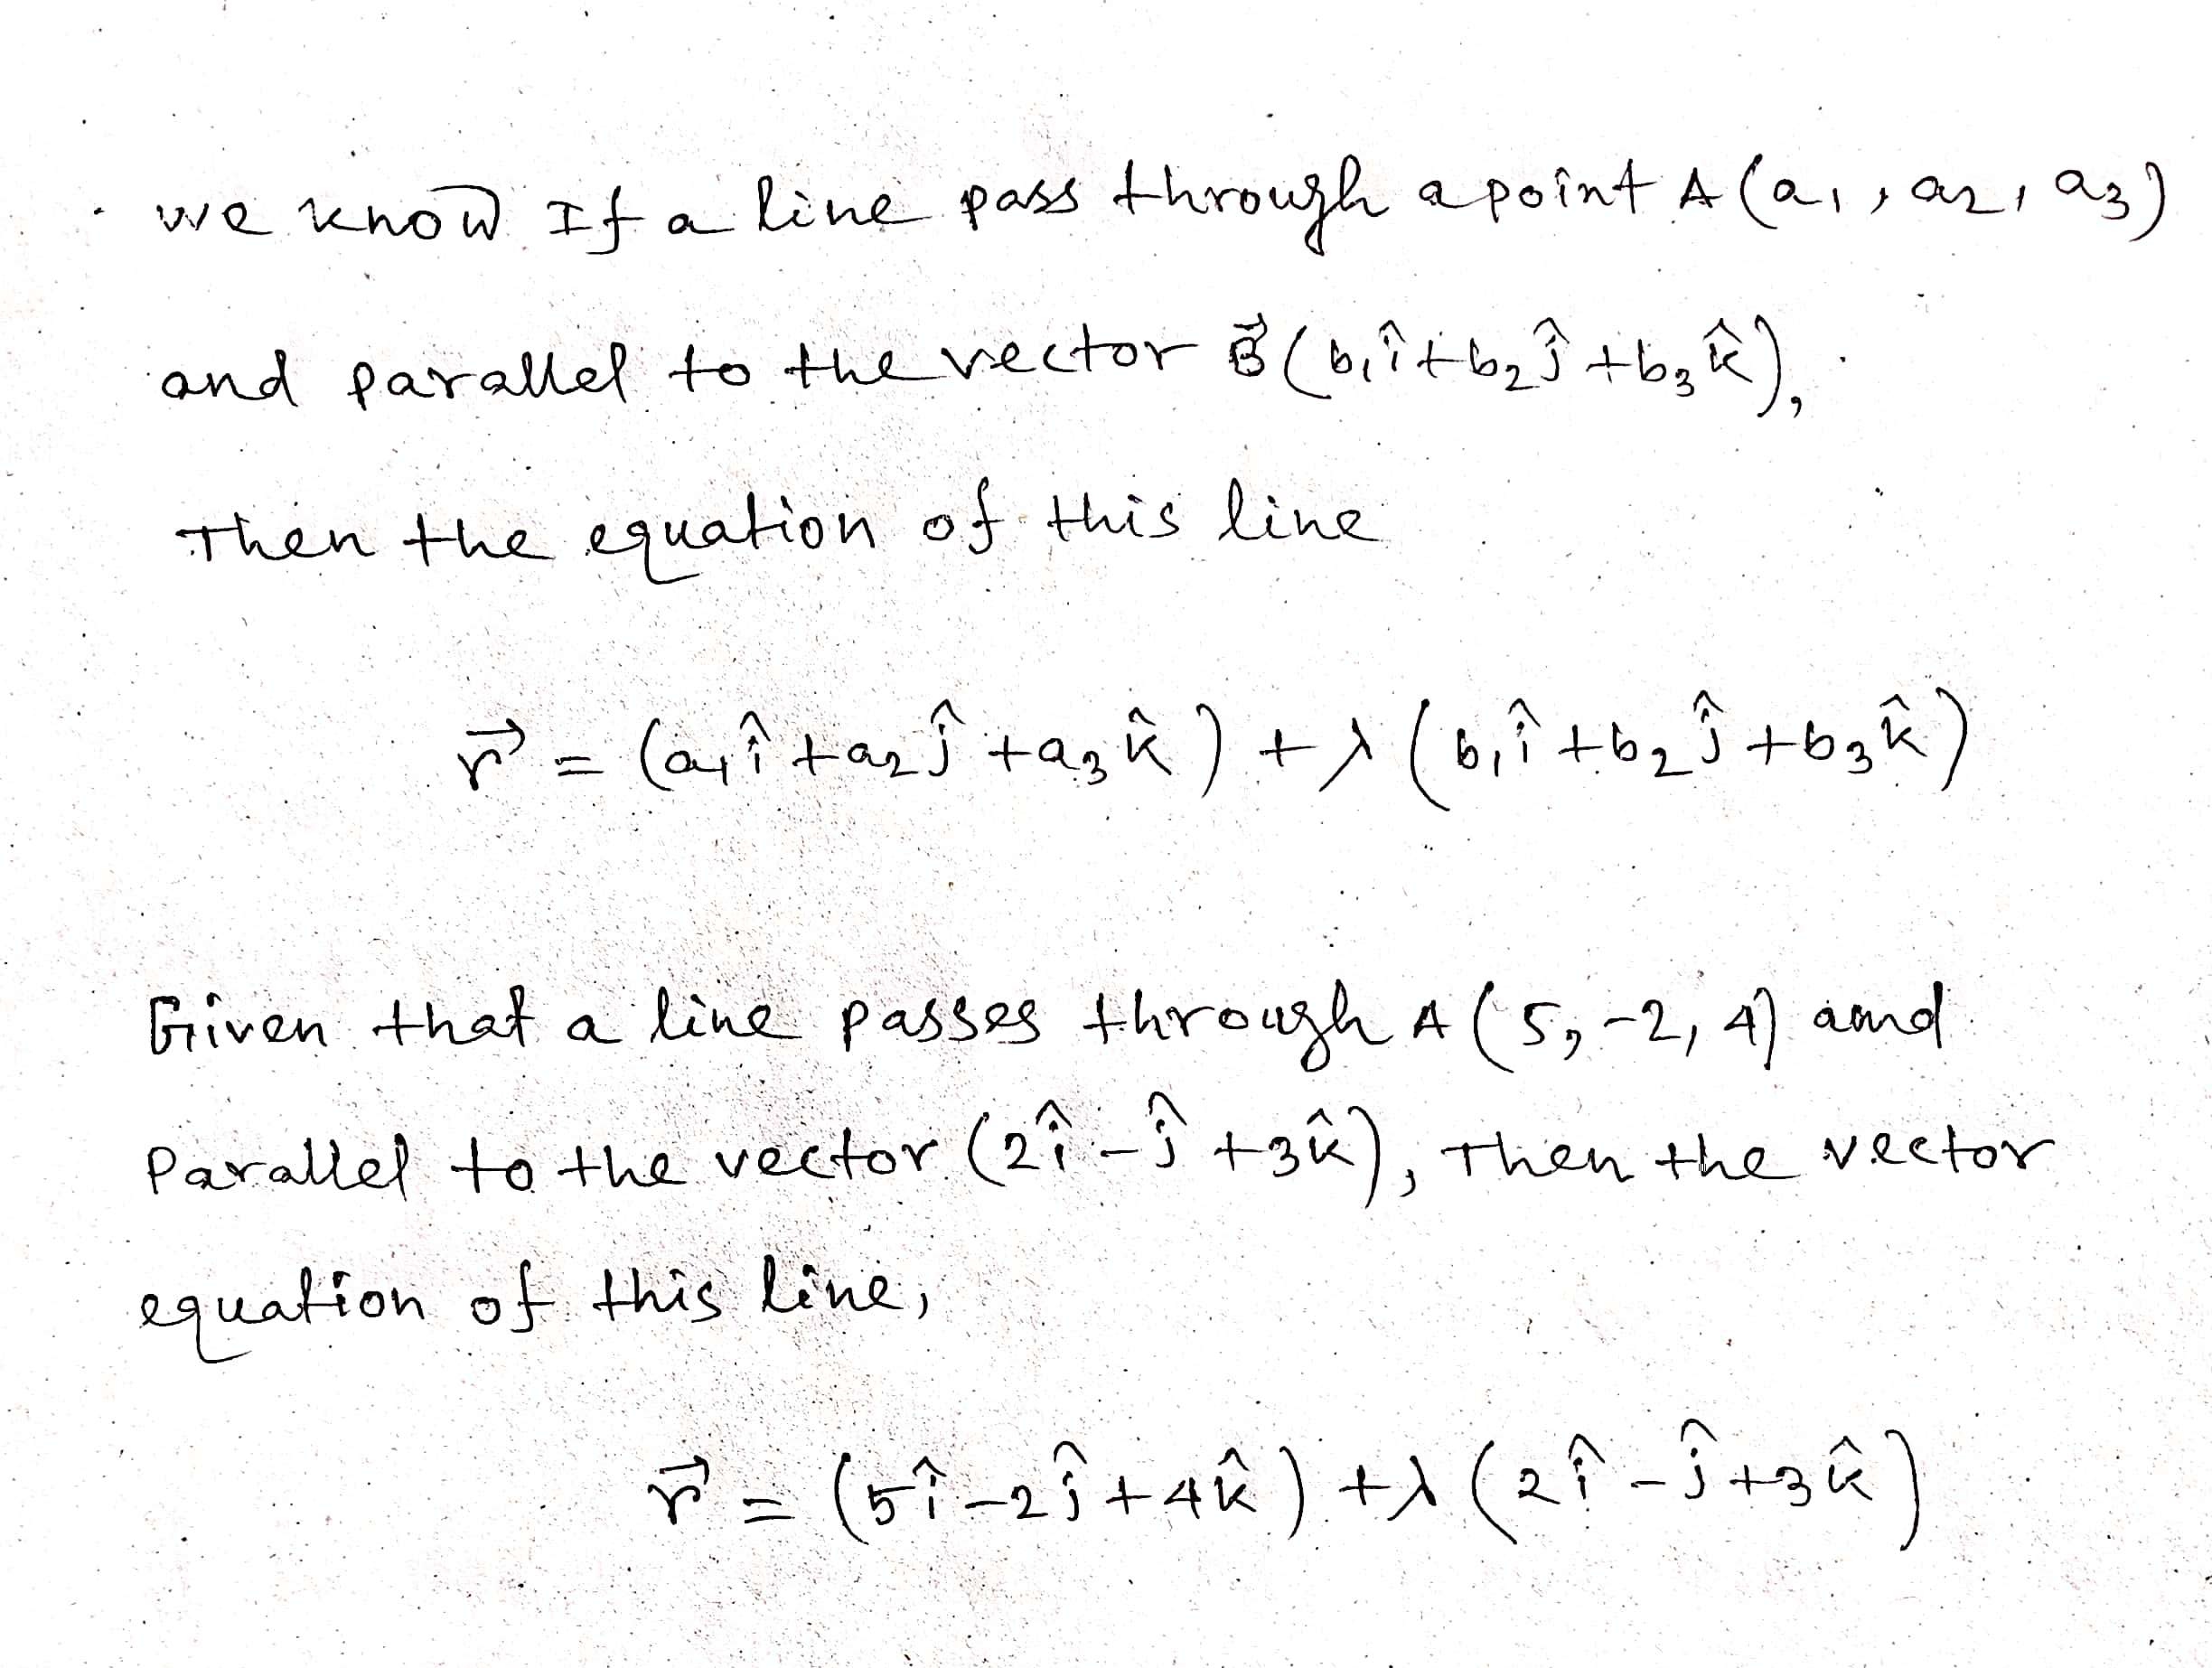 we know If a line pass through a point A (a₁, a₂, a₃)
and parallel to the vector B⃗ (b₁î + b₂ĵ + b₃k̂),
Then the equation of this line
r⃗ = (a₁î + a₂ĵ + a₃k̂) + λ (b₁î + b₂ĵ + b₃k̂)
Given that a line passes through A (5, -2, 4) and
Parallel to the vector (2î - ĵ + 3k̂), Then the vector
equation of this line,
r⃗ = (5î - 2ĵ + 4k̂) + λ (2î - ĵ + 3k̂)